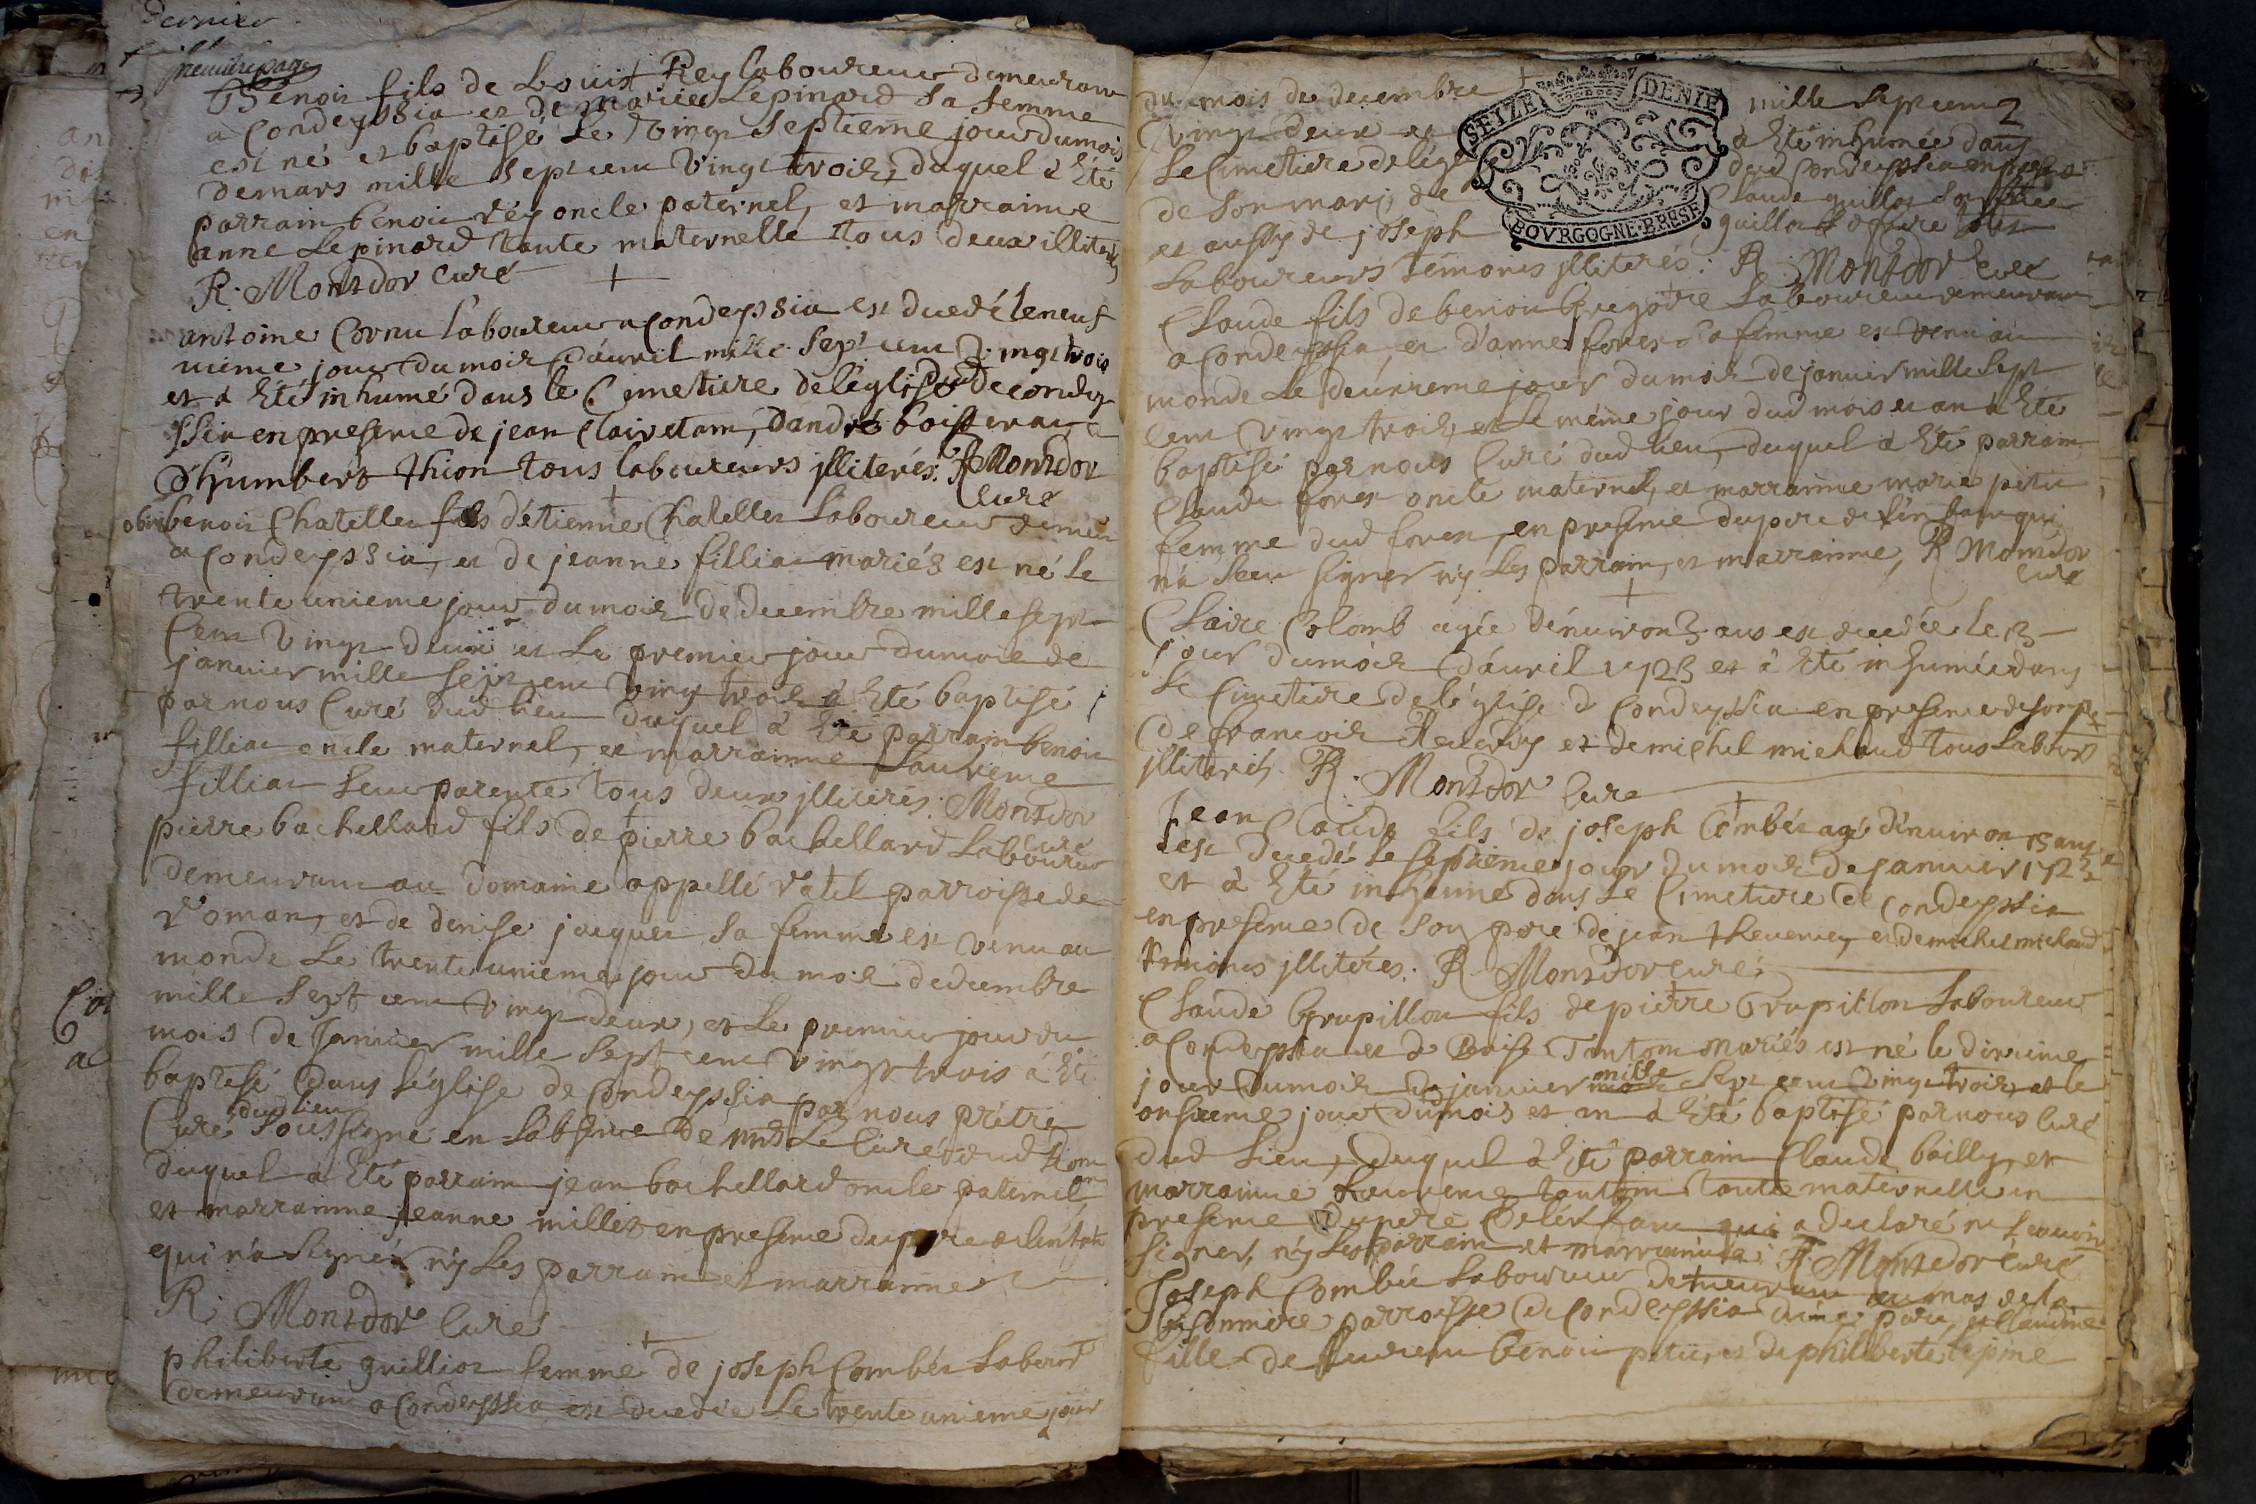 dernier
premiere page
Benoit fils de Louis Rey laboureur demeurant
a Condeyssia et de marie Lepinard sa femme
est né et baptisé le vingt septieme jour du mois
de mars mille sept cent vingt trois, duquel à Eté
parrain benoit réy oncle paternel, et marraine
anne Lepinard tante maternelle tous deux illiterés
R. Montdor curé
antoine Cornu laboureur a Condeyssia est decedé le neuf
uieme jour du mois d'auril mille sept cent vingt trois
et à Eté inhumé dans le Cimetiere de l'église de condey
ssia en presence de jean Clairetam, d'andré boisserat, et
d'humbert thion tous laboureurs jlliterés. R Montdor
Curé
benoit Chatellet fils d'étienne Chatellet Laboureur demeu
a Condeyssia, et de jeanne filliat mariés est né le
trente unieme jour du mois de decembre mille sept
Cent vingt deux et le premier jour du mois de
januier mille sept cent vingt trois à Eté baptisé
par nous Curé dud lieu duquel à Eté parrain benoit
filliat oncle maternel, et marraine Laurence
filliat leur parente tous deux jlliterés. Montdor
Curé
pierre bachellard fils de pierre bachellard Laboureur
demeurant au domaine appellé ratel parroisse de
roman, et de denise jacquet sa femme est venu au
monde le trente unieme jour du mois de decembre
mille sept cent vingt deux, et le premier jour du
mois de Januier mille sept cent vingt trois à Eté
baptisé dans l'église de Condeyssia par nous prétre
Curé dud lieu soussigné en l'absence de mr Le Curé dud Rom
an
duquel à Eté parrain jean bachellard oncle paternel,
et marraine jeanne millet en presence du pere de l'enfant
qui n'a signé ny Les parrain et marraine
R. Montdor Curé
philiberte guilliot femme de joseph Combét Labour
demeurant a Condeyssia est decedée Le trente unieme jour
du mois de decembre mille sept cent
2
vingt deux et à Eté inhumée dans
le Cimetiere de l'église dud Condeyssia en presence
de son mari, de Claude guillot son frere
et aussy de joseph guillot
Laboureurs témoins jlliterés. R. Montdor Curé
SEIZE DENIE
BOVRGOGNE·BRESSE
Claude fils de benoit Laboureur demeurant
a Condeyssia, et d'anne foret sa femme est venu au
monde Le deuxieme jour du mois de januier mille sept
cent vingt trois et Le méme jour dud mois et an à Eté
baptisé par nous Curé dud lieu, duquel à Eté parrain
Claude foret oncle maternel, et marraine marie petit
femme dud foret, en presence du pere de l'enfant qui
n'a sceu signer ny Les parrain, et marraine, R Montdor
Curé
Claire Colomb agée d'énuiron 3 ans est decedée le 13
jour du mois d'auril 1723 et à Eté inhumée dans
le Cimetiere de l'église de Condeyssia en presence de son pe
de francois et de michel michaud tous Labours
jlliterés. R. Montdor Curé
Jean Claude fils de joseph Combét agé d'énuiron 15 ans
est decedé le septieme jour du mois de januier 1723
et à Eté inhumé dans Le Cimetiere de Condeyssia
en presence de son pere de jean theuenet, et de michel michaud
témoins jlliterés. R. Montdor Curé
Claude Grupillon fils de pierre Grupillon Laboureur
a Condeyssia et de Tantom mariés est né le dixieme
jour du mois de januier mille sept cent vingt trois et le
onsieme jour dud mois et an à Eté baptisé par nous Curé
dud lieu, duquel à Eté parrain Claude bailly, et
marraine Laurence tantom tante maternelle en
presence du pere de l'enfant qui a declaré ne scauoir
signer, ny Les parrain et marraine. R. Montdor Curé
Joseph Combét Laboureur demeurant au mas de la
parroisse de Condeyssia d'une part, et Claudine
fille de benoit petit, et de philiberte Lepine